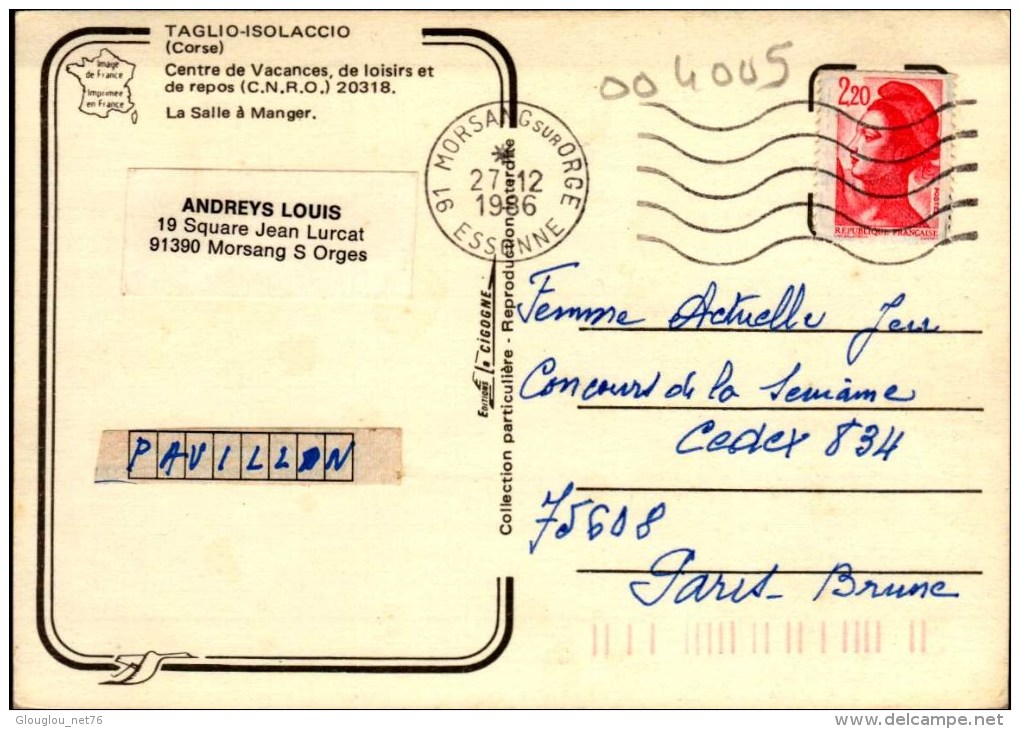 TAGLIO-ISOLACCIO
(Corse)
Centre de Vacances, de loisirs et
de repos (C.N.R.O.) 20318.
La Salle à Manger.
Image
de France
Imprimée
en France
ANDREYS LOUIS
19 Square Jean Lurcat
91390 Morsang S Orges
PAVILLON
EDITIONS CIGOGNE
Collection particulière - Reproduction interdite
91 MORSANG SUR ORGE
27-12
1986
ESSONNE
004005
2,20
POSTES
REPUBLIQUE FRANÇAISE
Femme Actuelle Jeu
Concours de la Semaine
Cedex 834
75608
Paris - Brune
Glouglou_net76
delcampe.net